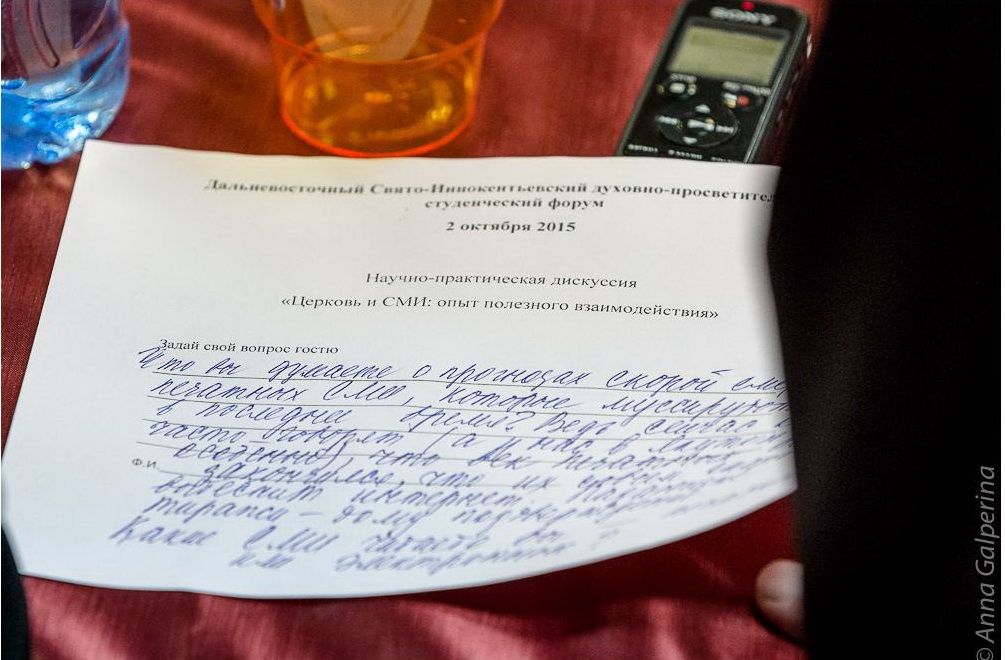 SONY
Дальневосточный Свято-Иннокентьевский духовно-просветител
студенческий форум
2 октября 2015
Научно-практическая дискуссия
«Церковь и СМИ: опыт полезного взаимодействия»
Задай свой вопрос гостю
Что вы думаете о прогнозах скорой
печатных СМИ, которые муссируют
в последнее время? Ведь сейчас
часто говорят (а у нас в
особенно), что век печатных
Ф.И.
закончился, что их скоро
вытеснит интернет.
тиражи – тому
Какие СМИ читаете вы
или
© Anna Galperina